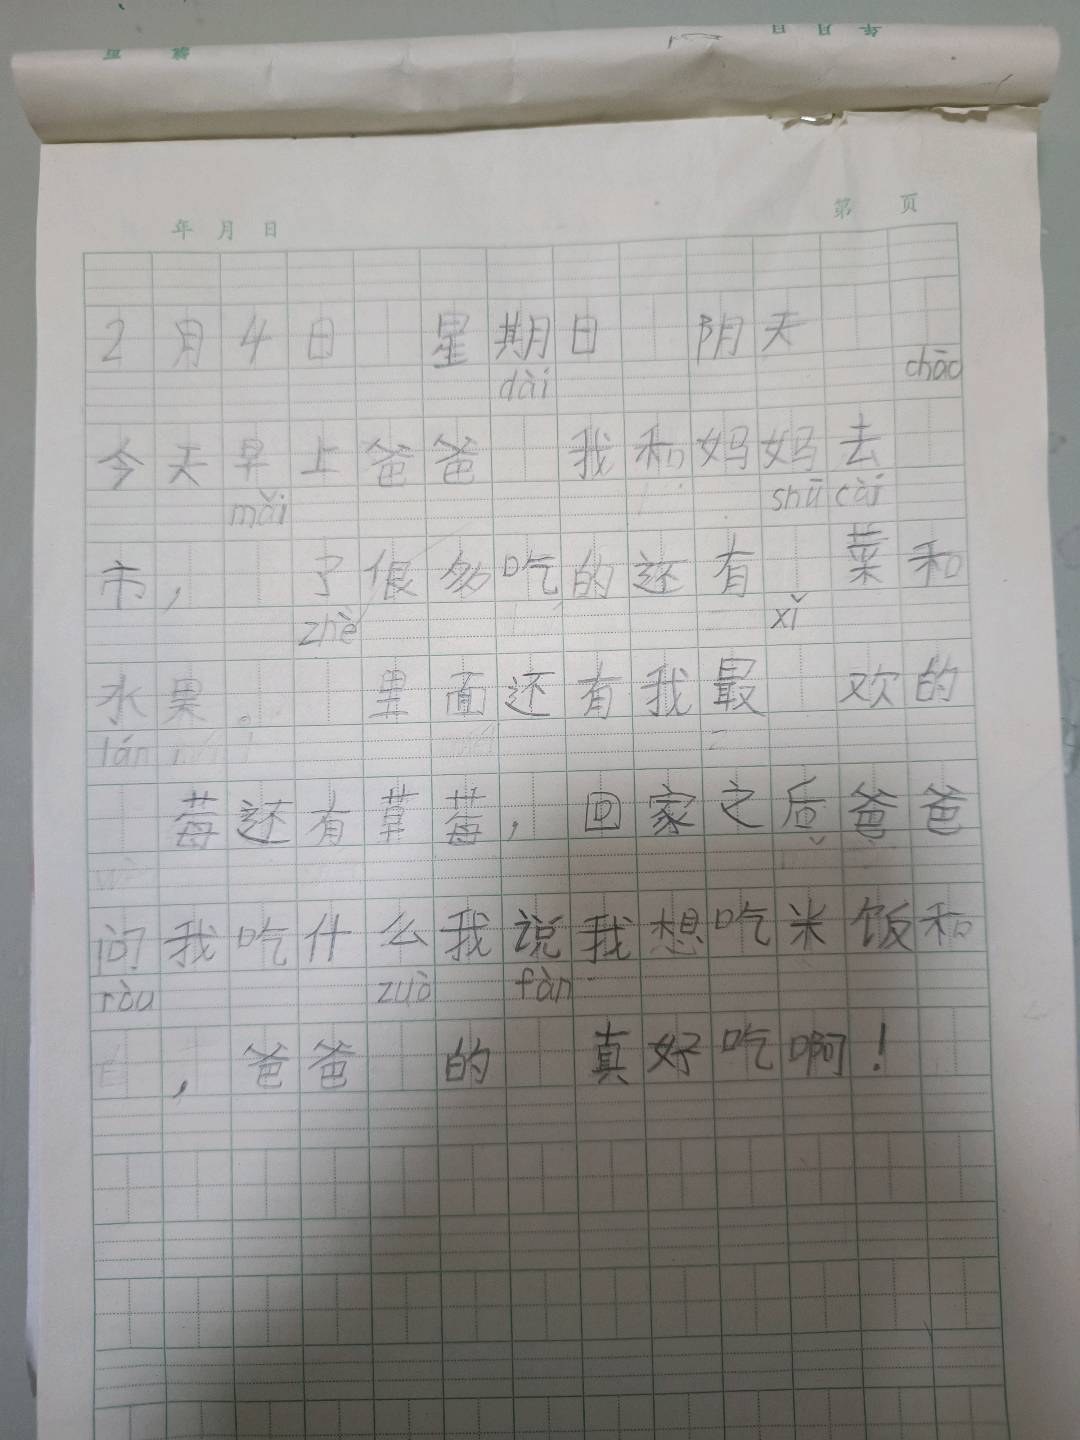 第 页
年 月 日
年 月 日
第 页
2月4日 星期日 阴天
dài chāo
今天早上爸爸 我和妈妈去
mǎi shū cài
市， 了很多吃的还有 菜和
zhè xǐ
水果。 里面还有我最 欢的
lán
莓还有草莓，回家之后爸爸
问我吃什么我说我想吃米饭和
ròu zuò fàn
，爸爸 的 真好吃啊！